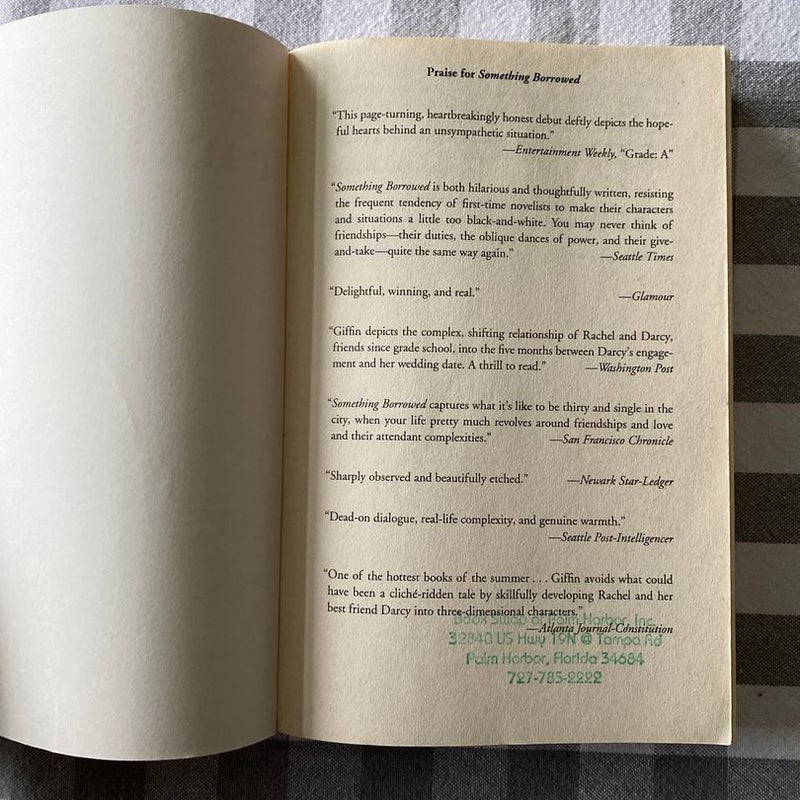 Praise for Something Borrowed
“This page-turning, heartbreakingly honest debut deftly depicts the hope-
ful hearts behind an unsympathetic situation.”
—Entertainment Weekly, “Grade: A”
“Something Borrowed is both hilarious and thoughtfully written, resisting
the frequent tendency of first-time novelists to make their characters
and situations a little too black-and-white. You may never think of
friendships—their duties, the oblique dances of power, and their give-
and-take—quite the same way again.” —Seattle Times
“Delightful, winning, and real.” —Glamour
“Giffin depicts the complex, shifting relationship of Rachel and Darcy,
friends since grade school, into the five months between Darcy’s engage-
ment and her wedding date. A thrill to read.” —Washington Post
“Something Borrowed captures what it’s like to be thirty and single in the
city, when your life pretty much revolves around friendships and love
and their attendant complexities.” —San Francisco Chronicle
“Sharply observed and beautifully etched.” —Newark Star-Ledger
“Dead-on dialogue, real-life complexity, and genuine warmth.”
—Seattle Post-Intelligencer
“One of the hottest books of the summer . . . Giffin avoids what could
have been a cliché-ridden tale by skillfully developing Rachel and her
best friend Darcy into three-dimensional characters.”
—Atlanta Journal-Constitution
Book Swap of Palm Harbor, Inc.
32840 US Hwy 19N @ Tampa Rd
Palm Harbor, Florida 34684
727-785-2222